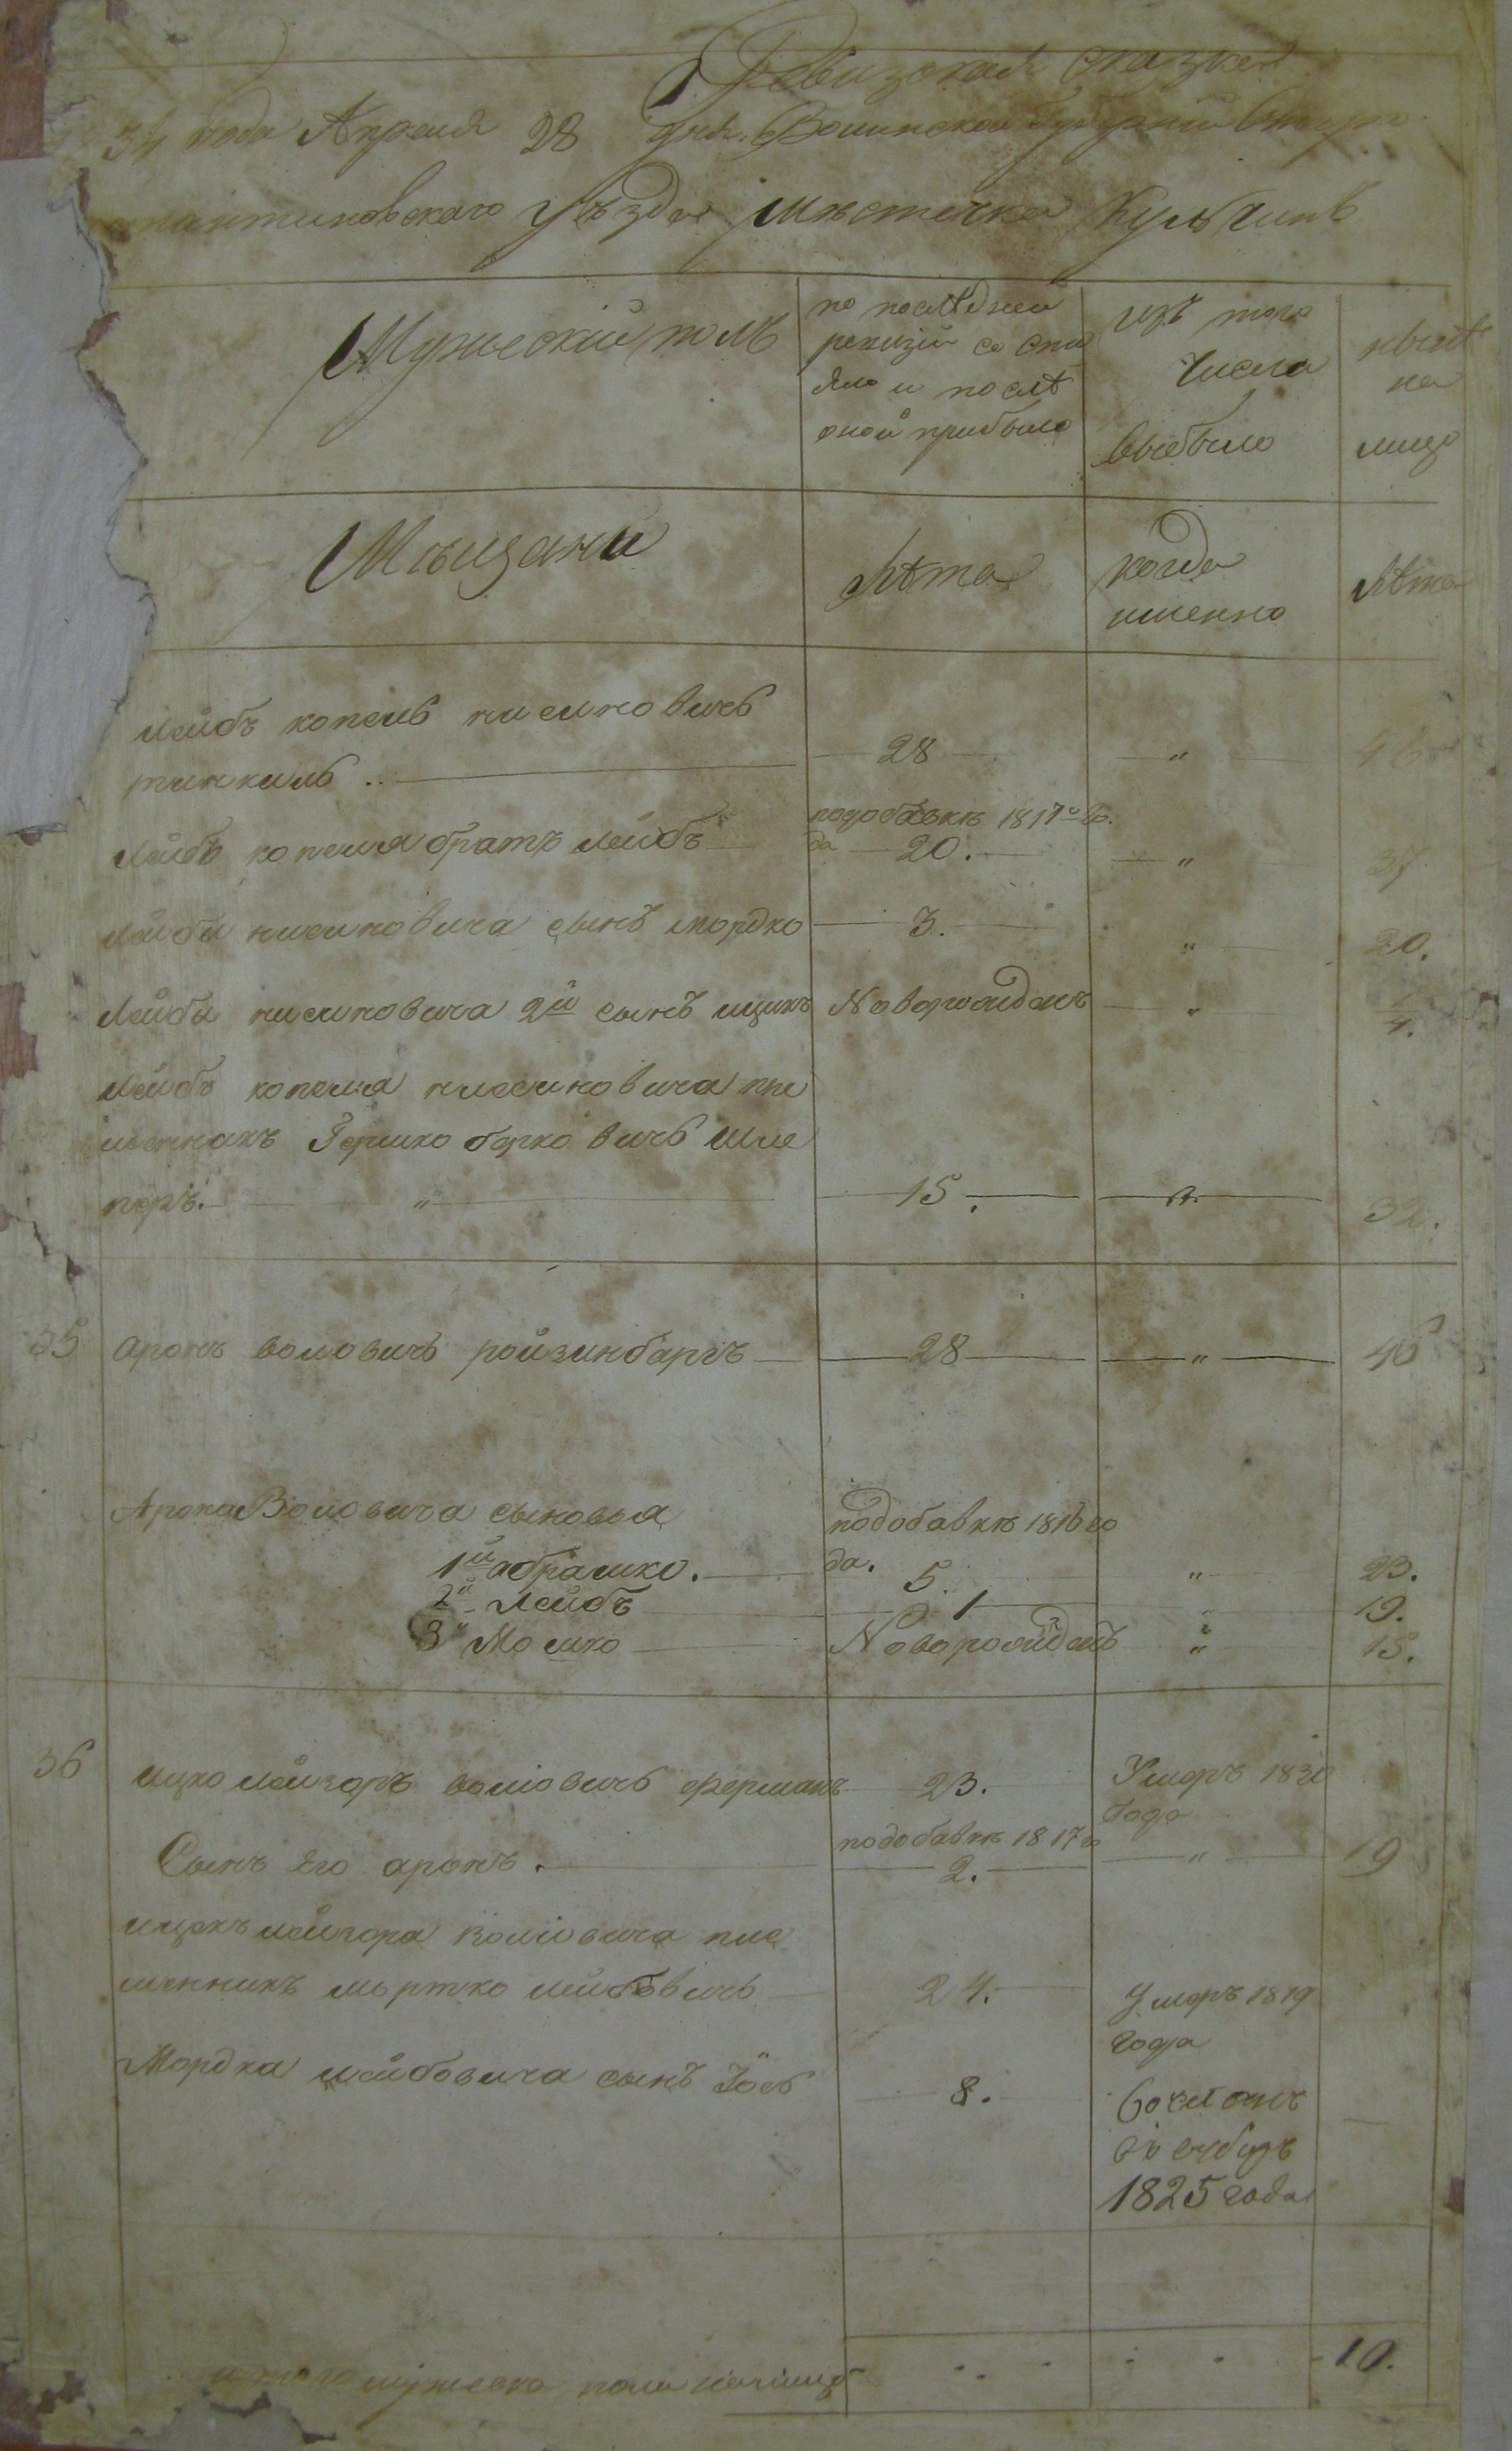 Ревизская сказка
34 года Апреля 28 дня. Волынской Губернии Старо
стантиновскаго Уѣзда Мѣстечка Кульчинъ
Мужескій полъ
по последнеи ревизіи состо яло и послѣ оной прибыло
изъ того числа выбыло
нынѣ на лицо
Мѣщани
Лѣта
когда именно
Лѣта
Лейбъ копель нисиновичъ
тинкиль .. 28 " 46
Лейбъ копеля братъ лейбъ подобавкѣ 1817 го
да 20. " 37
лейбы нисиновича сынъ мордко 3. " 20.
Лейбы нисиновича 2й сынъ ицикъ Новорожденъ "
Лейбъ копеля нисиновича пле
менникъ Гершко берковичъ шле
перъ. " 15. " 32.
35 аронъ воловичъ ройзинбаргъ 28 " 46
Арона Воловича сыновья подобавкѣ 1816 го
1й абрашко. да. 5. " 23.
2й Лейбъ 1 " 19.
3й Мошко Новорожденъ " 15.
36 ицко лейзоръ воліовичъ ферманъ 23. Умеръ 1830
года
Сынъ Его аронъ. подобавкѣ 1817 го 2. " 19
ицекъ лейзора воліовича пле
менникъ мортко лейбовичъ 24. Умеръ 1819
года
Мордка лейбовича сынъ Іось 8.
1825 года
итого мужеска пола наличо 10.